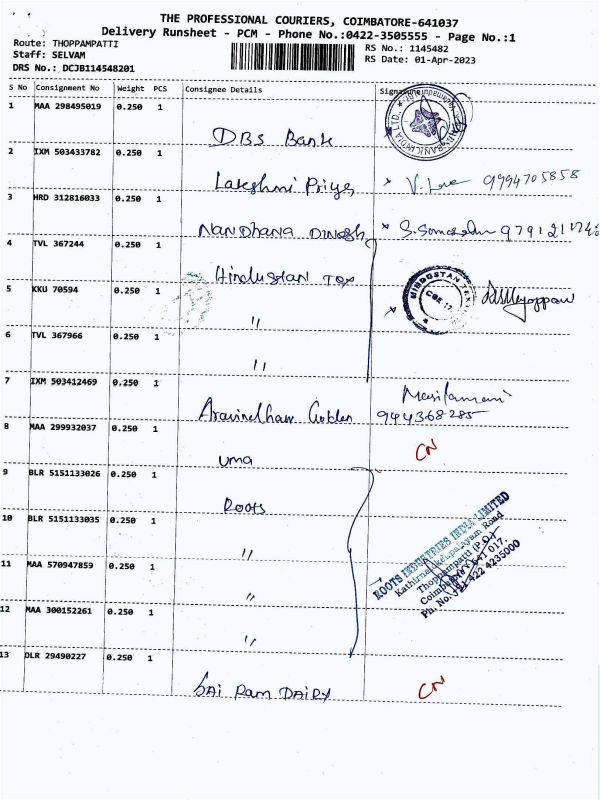 THE PROFESSIONAL COURIERS, COIMBATORE-641037
Delivery Runsheet - PCM - Phone No.:0422-3505555 - Page No.:1
Route: THOPPAMPATTI
Staff: SELVAM
DRS No.: DCJB114548201
RS No.: 1145482
RS Date: 01-Apr-2023
S No Consignment No Weight PCS Consignee Details Signature
1 MAA 298495019 0.250 1
DBS Bank
2 IXM 503433782 0.250 1
Lakshmi Priya 9994705858
3 HRD 312816033 0.250 1
NANDHANA DINESH
4 TVL 367244 0.250 1
Hindustan Tex
HINDUSTAN
5 KKU 70594 0.250 1
"
6 TVL 367966 0.250 1
"
7 IXM 503412469 0.250 1
Aravindhan
8 MAA 299932037 0.250 1
Uma CN
9 BLR 5151133026 0.250 1
Roots
10 BLR 5151133035 0.250 1
"
ROOTS INDUSTRIES INDIA LIMITED
Kathirnaickenpalayam Road
Thoppampatti (P.O.)
Coimbatore 641 017.
Ph. No. +91 422 4235000
11 MAA 570947859 0.250 1
"
12 MAA 300152261 0.250 1
"
13 DLR 29490227 0.250 1
SAI RAM DAIRY CN